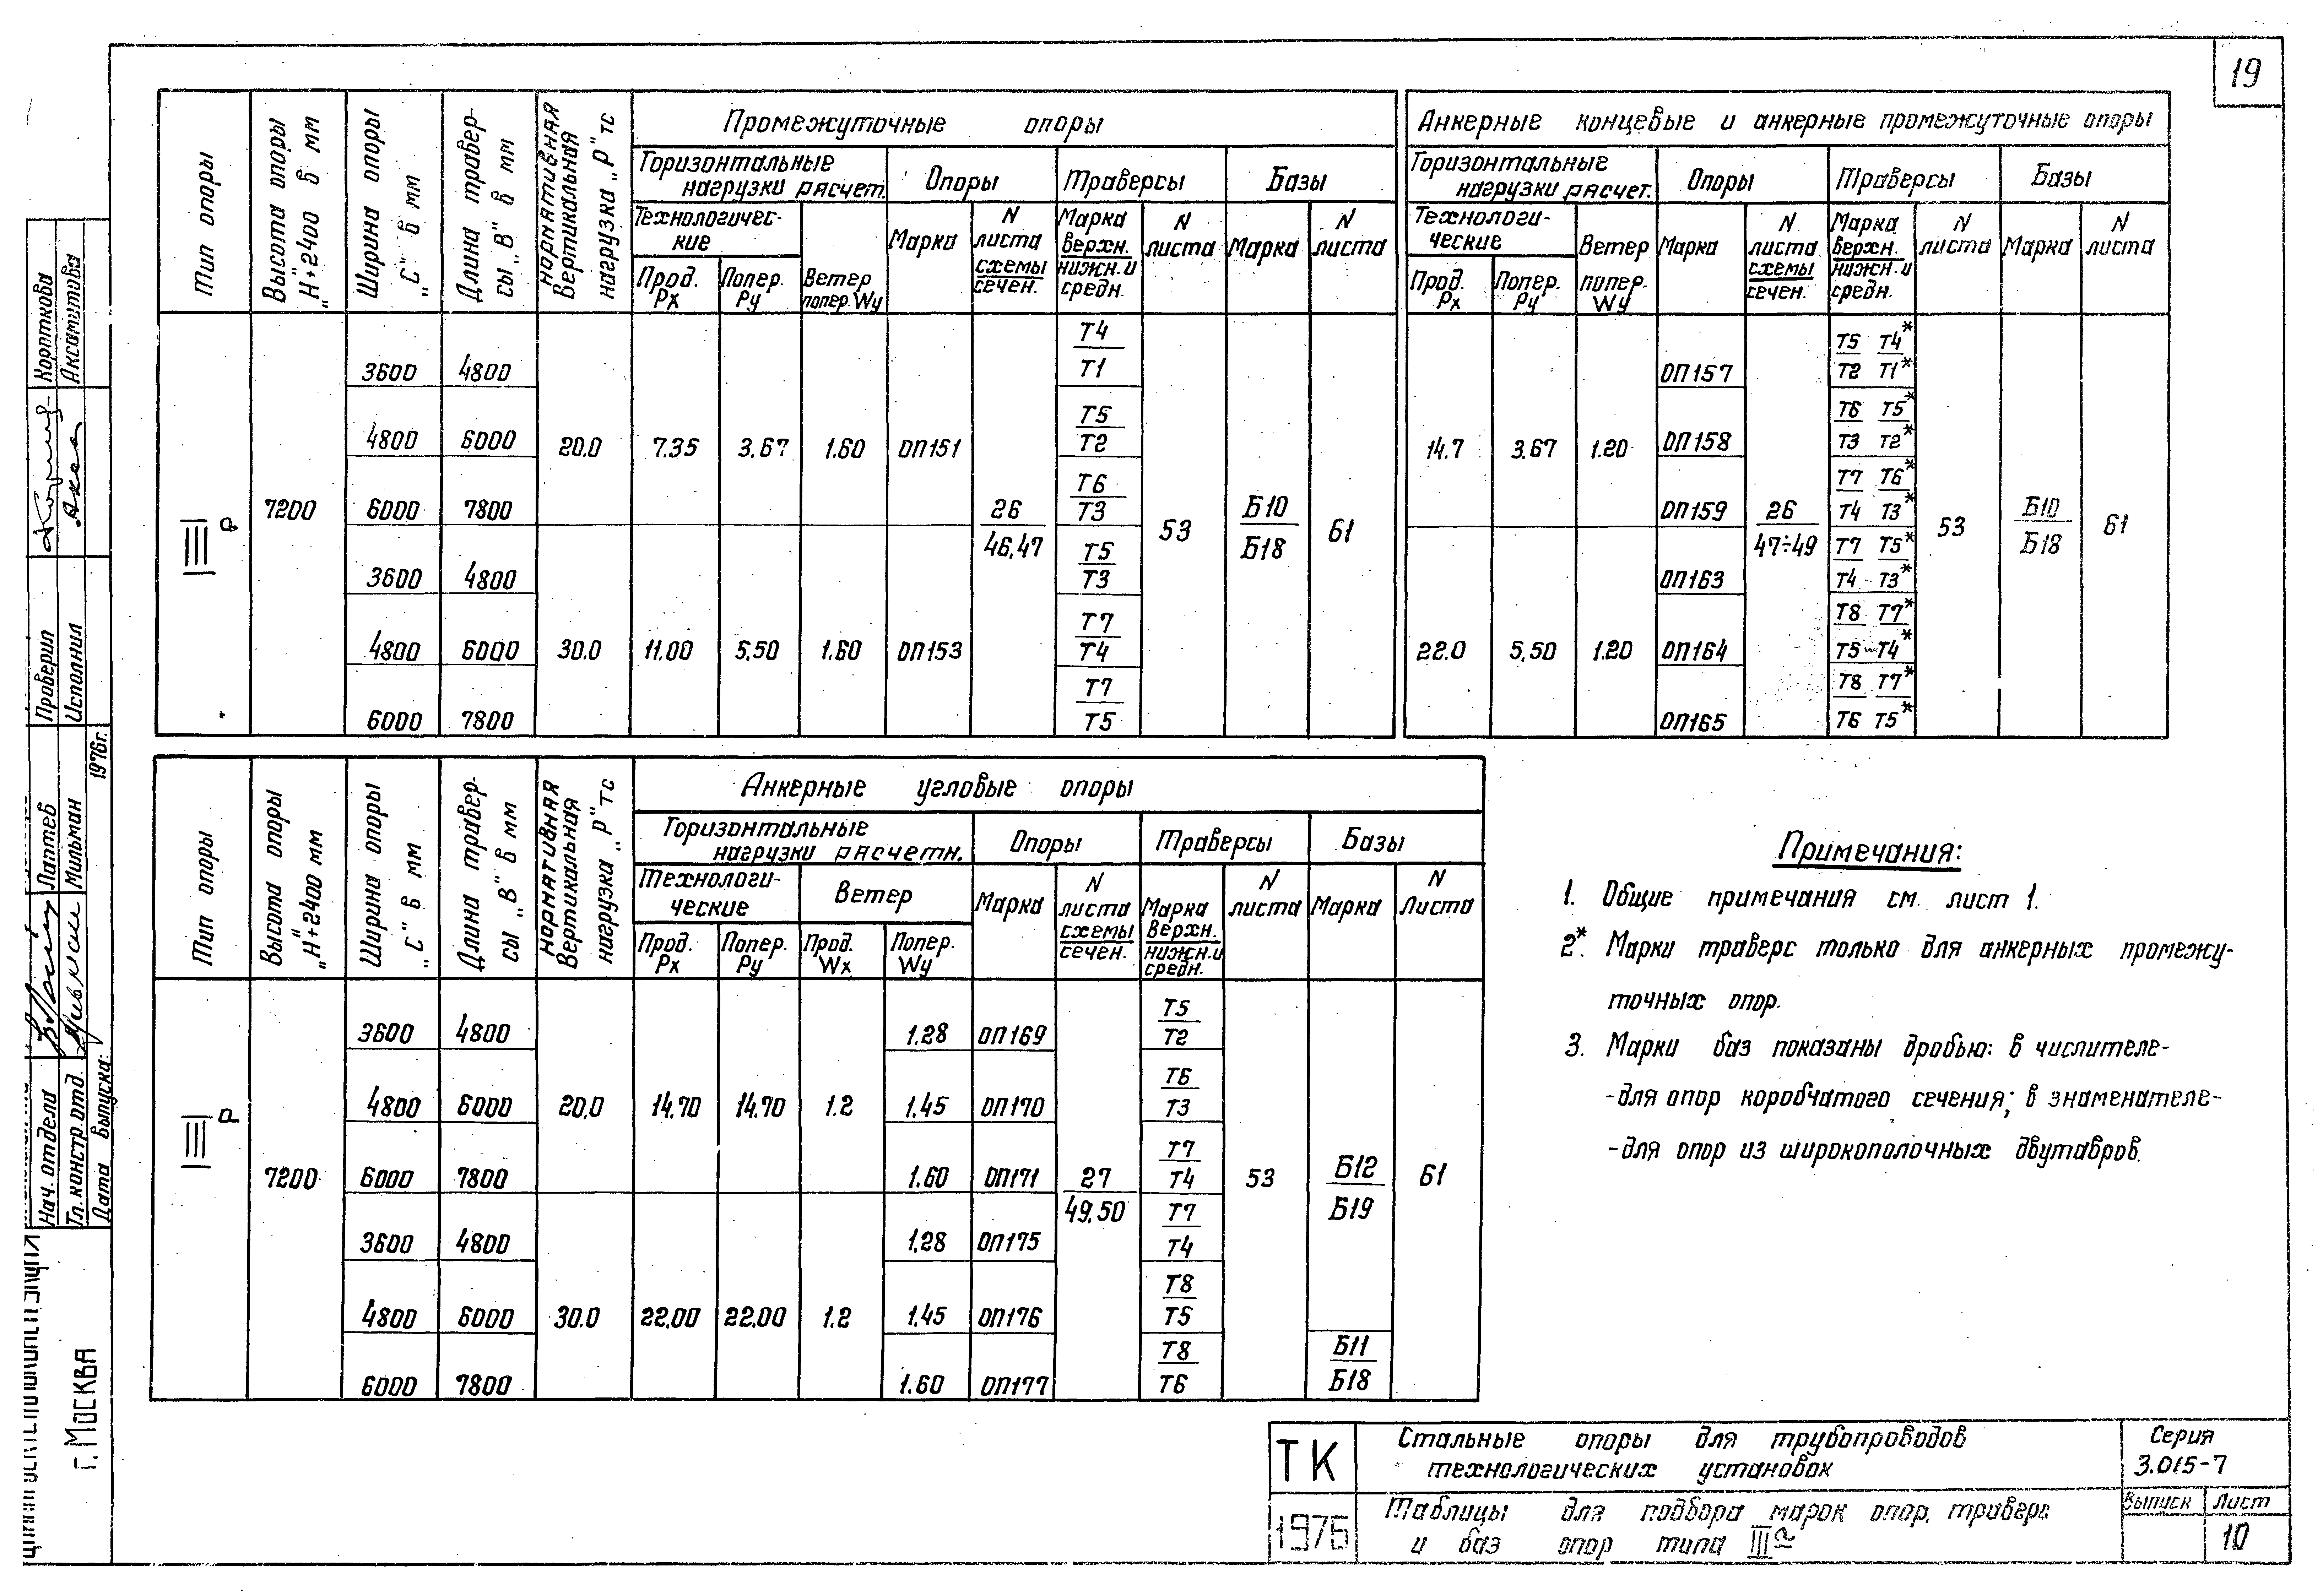 19
Тип опоры
Высота опоры „Н"+2400 в мм
Ширина опоры „С" в мм
Длина траверсы „В" в мм
Нормативная вертикальная нагрузка „Р" тс
Промежуточные опоры
Горизонтальные нагрузки расчет.
Опоры
Траверсы
Базы
Технологичес-
кие
Прод. Рх
Попер. Ру
Ветер попер. Wy
Марка
N листа схемы/сечен.
Марка верхн./нижн. и средн.
N листа
Марка
N листа
Анкерные концевые и анкерные промежуточные опоры
Горизонтальные нагрузки расчет.
Опоры
Траверсы
Базы
Технологи-
ческие
Прод. Рх
Попер. Ру
Ветер попер. Wy
Марка
N листа схемы/сечен.
Марка верхн./нижн. и средн.
N листа
Марка
N листа
IIIр
7200
20.0 7.35 3.67 1.60 ОП151
30.0 11.00 5.50 1.60 ОП153
26/46,47
53
Б10/Б18
61
3600 4800 Т4/Т1
4800 6000 Т5/Т2
6000 7800 Т6/Т3
3600 4800 Т5/Т3
4800 6000 Т7/Т4
6000 7800 Т7/Т5
14.7 3.67 1.20
22.0 5.50 1.20
ОП157 Т5/Т2 Т4*/Т1*
ОП158 Т6/Т3 Т5*/Т2*
ОП159 Т7/Т4 Т6*/Т3*
ОП163 Т7/Т4 Т5*/Т3*
ОП164 Т8/Т5 Т7*/Т4*
ОП165 Т8/Т6 Т7*/Т5*
26/47÷49
53
Б10/Б18
61
Тип опоры
Высота опоры „Н"+2400 мм
Ширина опоры „С" в мм
Длина траверсы „В" в мм
Нормативная вертикальная нагрузка „Р" тс
Анкерные угловые опоры
Горизонтальные нагрузки расчетн.
Опоры
Траверсы
Базы
Технологи-
ческие
Ветер
Прод. Рх
Попер. Ру
Прод. Wx
Попер. Wy
Марка
N листа схемы/сечен.
Марка верхн./нижн. и средн.
N листа
Марка
N листа
IIIр
7200
20,0 14.70 14.70 1.2
30.0 22.00 22.00 1.2
3600 4800 1.28 ОП169 Т5/Т2
4800 6000 1.45 ОП170 Т6/Т3
6000 7800 1.60 ОП171 Т7/Т4
3600 4800 1.28 ОП175 Т7/Т4
4800 6000 1.45 ОП176 Т8/Т5
6000 7800 1.60 ОП177 Т8/Т6
27/49,50
53
Б12/Б19
Б11/Б18
61
Примечания:
1. Общие примечания см. лист 1.
2*. Марки траверс только для анкерных промежу-
точных опор.
3. Марки баз показаны дробью: в числителе-
-для опор коробчатого сечения; в знаменателе-
-для опор из широкополочных двутавров.
ТК
1976
Стальные опоры для трубопроводов
технологических установок
Таблицы для подбора марок опор, траверс
и баз опор типа IIIр
Серия
3.015-7
Выпуск
Лист
10
Нач. отдела
Лаптев
Гл. констр. отд.
Мильман
Дата выпуска:
1976г.
Проверил
Исполнил
г. Москва